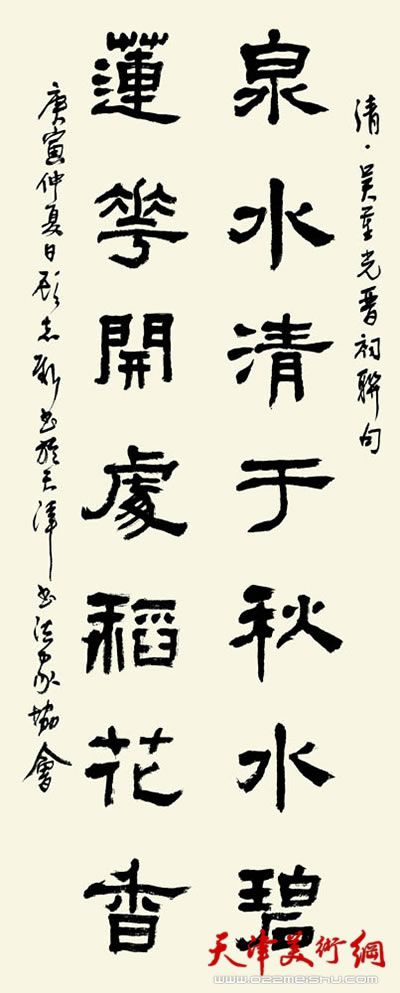 清·吴重光晉祠聯句
泉水清于秋水碧
蓮華開處稻花香
庚寅仲夏日顧志新書於天津書法家協會
天津美術網
www.022meishu.com